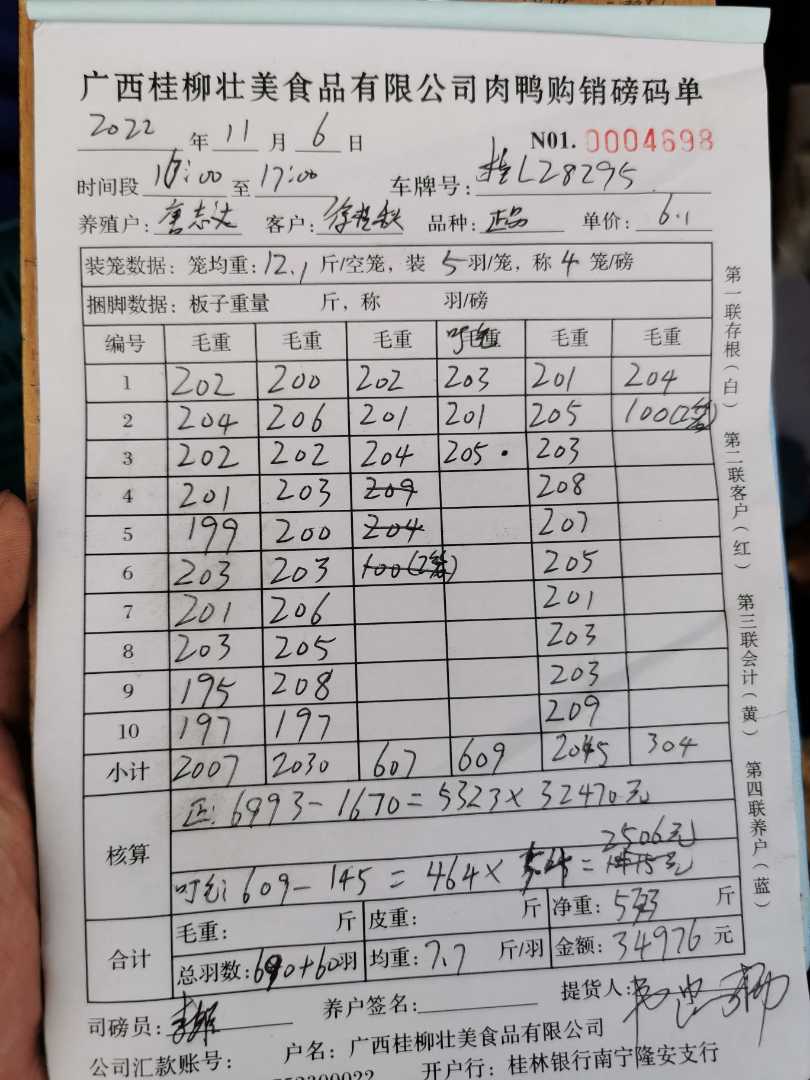 广西桂柳壮美食品有限公司肉鸭购销磅码单
2022 年 11 月 6 日 N01. 0004698
时间段 16:00 至 17:00 车牌号: 桂L28295
养殖户: 唐志达 客户: 品种: 正品 单价: 6.1
装笼数据: 笼均重: 12.1 斤/空笼, 装 5 羽/笼, 称 4 笼/磅
捆脚数据: 板子重量 斤, 称 羽/磅
编号 毛重 毛重 毛重 毛重 毛重 毛重
1 202 200 202 203 201 204
2 204 206 201 201 205 100(2笼)
3 202 202 204 205 203
4 201 203 209 208
5 199 200 204 207
6 203 203 100(2笼) 205
7 201 206 201
8 203 205 203
9 195 208 203
10 197 197 209
小计 2007 2030 607 609 2045 304
核算
正: 6993-1670=5323× 32470元
2506元
609-145=464× =
合计
毛重: 斤 皮重: 斤 净重: 斤
总羽数: 690+60羽 均重: 7.7 斤/羽 金额: 34976 元
司磅员: 养户签名: 提货人:
公司汇款账号: 户名: 广西桂柳壮美食品有限公司
开户行: 桂林银行南宁隆安支行
第一联存根(白) 第二联客户(红) 第三联会计(黄) 第四联养户(蓝)